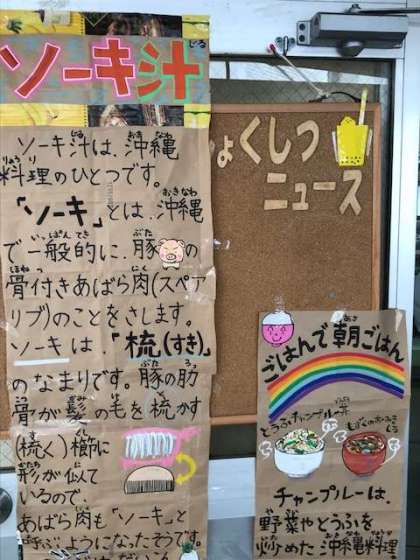 ソーキ汁
じる
ソーキ汁は、沖縄
料理のひとつです。
「ソーキ」とは、沖縄
で一般的に、豚の
骨付きあばら肉(スペア
リブ)のことをさします。
ソーキは、「梳(すき)」
のなまりです。豚の肋
骨が髪の毛を梳かす
(梳く)櫛に
形が似て
いるので、
あばら肉も「ソーキ」と
呼ぶようになったそうです。
ょくしつ
ニュース
ごはんで朝ごはん
とうふチャンプルー丼
チャンプルーは、
野菜やとうふを
炒めた沖縄料理